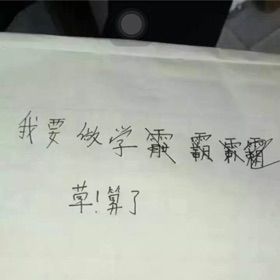 我要做学霸霸霸霸
草!算了